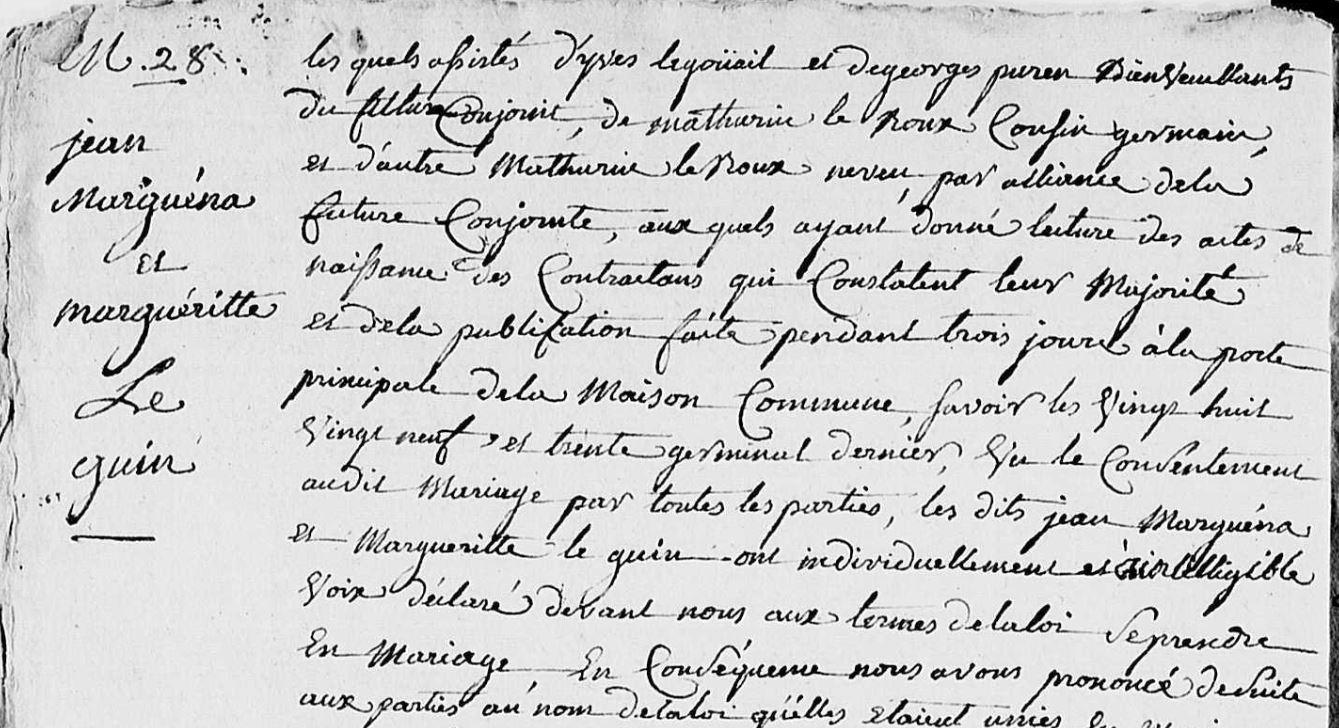 M. 28
jean
Marguéna
et
marguéritte
Le
guin
les quels assistés d'yves legoüail et degeorges puren Bienveuillants
du futur Conjoint, de mathurin le Roux Cousin germain,
et d'autre Mathurin le Roux neveu par alliance dela
future Conjointe, aux quels ayant donné lecture des actes de
naissance des Contractans qui Constatent leur Majorité
et dela publication faite pendant trois jours à la porte
principale dela Maison Commune, savoir les Vingt huit
Vingt neuf et trente germinal dernier, Vu le Consentement
audit Mariage par toutes les parties, les dits jean Marguéna
et Margueritte le guin ont individuellement et à intelligible
Voix déclaré devant nous aux termes delaloi Seprendre
En Mariage, En Conséquence nous avons prononcé desuite
aux parties au nom delaloi qu'elles Etaient unies En